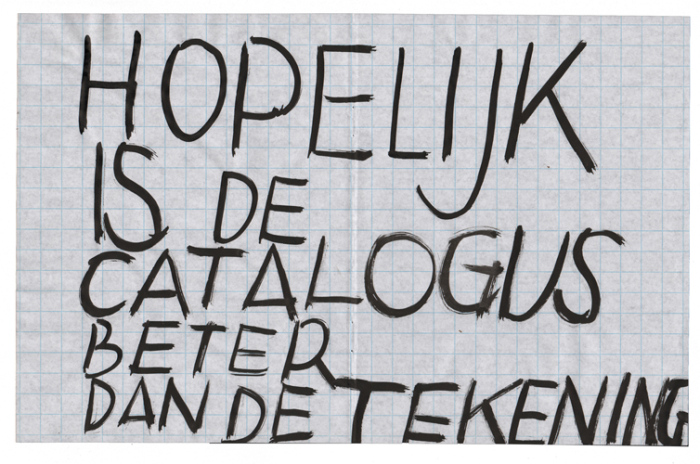 HOPELIJK
IS DE
CATALOGUS
BETER
DAN DE TEKENING